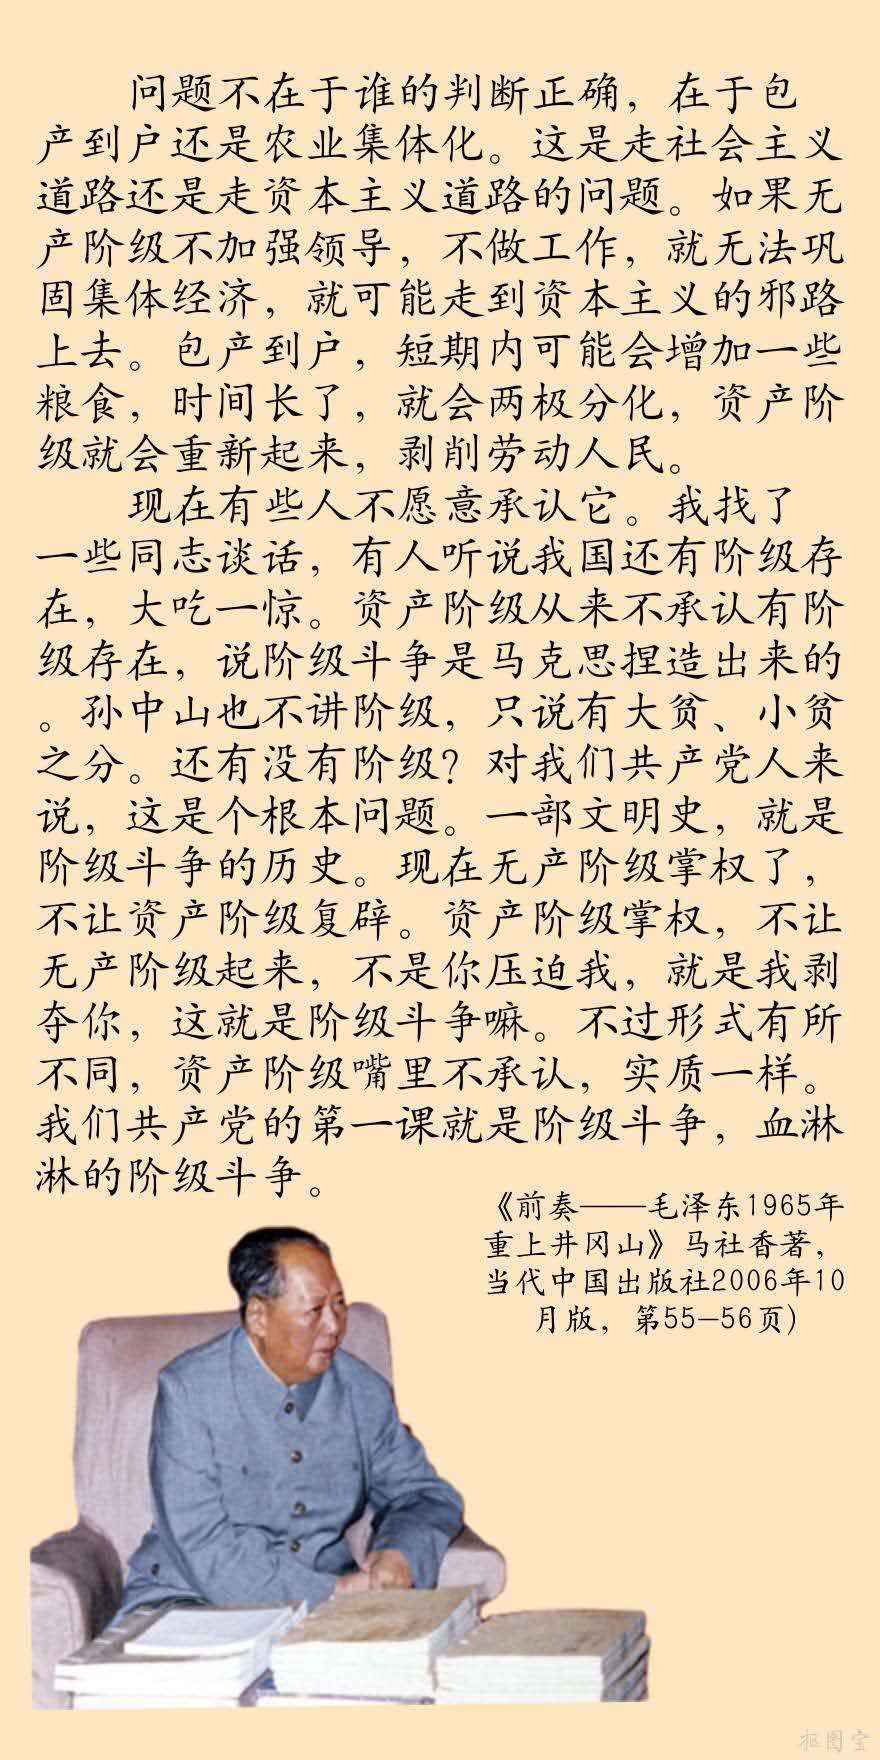 问题不在于谁的判断正确，在于包
产到户还是农业集体化。这是走社会主义
道路还是走资本主义道路的问题。如果无
产阶级不加强领导，不做工作，就无法巩
固集体经济，就可能走到资本主义的邪路
上去。包产到户，短期内可能会增加一些
粮食，时间长了，就会两极分化，资产阶
级就会重新起来，剥削劳动人民。
现在有些人不愿意承认它。我找了
一些同志谈话，有人听说我国还有阶级存
在，大吃一惊。资产阶级从来不承认有阶
级存在，说阶级斗争是马克思捏造出来的
。孙中山也不讲阶级，只说有大贫、小贫
之分。还有没有阶级？对我们共产党人来
说，这是个根本问题。一部文明史，就是
阶级斗争的历史。现在无产阶级掌权了，
不让资产阶级复辟。资产阶级掌权，不让
无产阶级起来，不是你压迫我，就是我剥
夺你，这就是阶级斗争嘛。不过形式有所
不同，资产阶级嘴里不承认，实质一样。
我们共产党的第一课就是阶级斗争，血淋
淋的阶级斗争。
《前奏——毛泽东1965年
重上井冈山》马社香著，
当代中国出版社2006年10
月版，第55—56页）
抠图宝